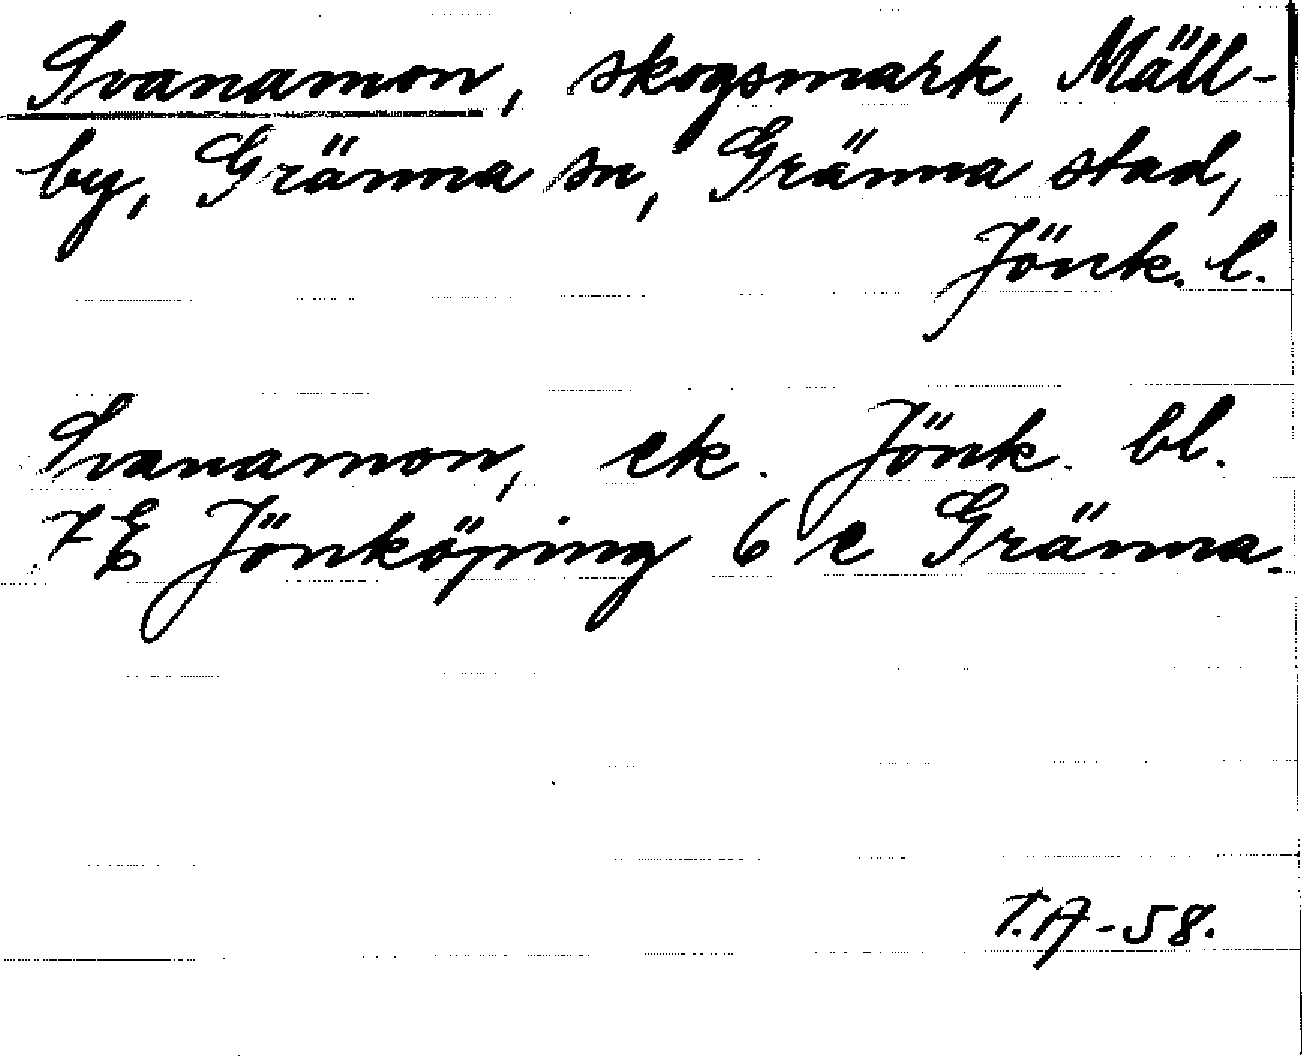 Svanamon, skogsmark, Mäll-
by, Gränna sn, Gränna stad,
Jönk. l.
Svanamon, ek. Jönk. bl.
7E Jönköping 6 e Gränna.
T.A-58.